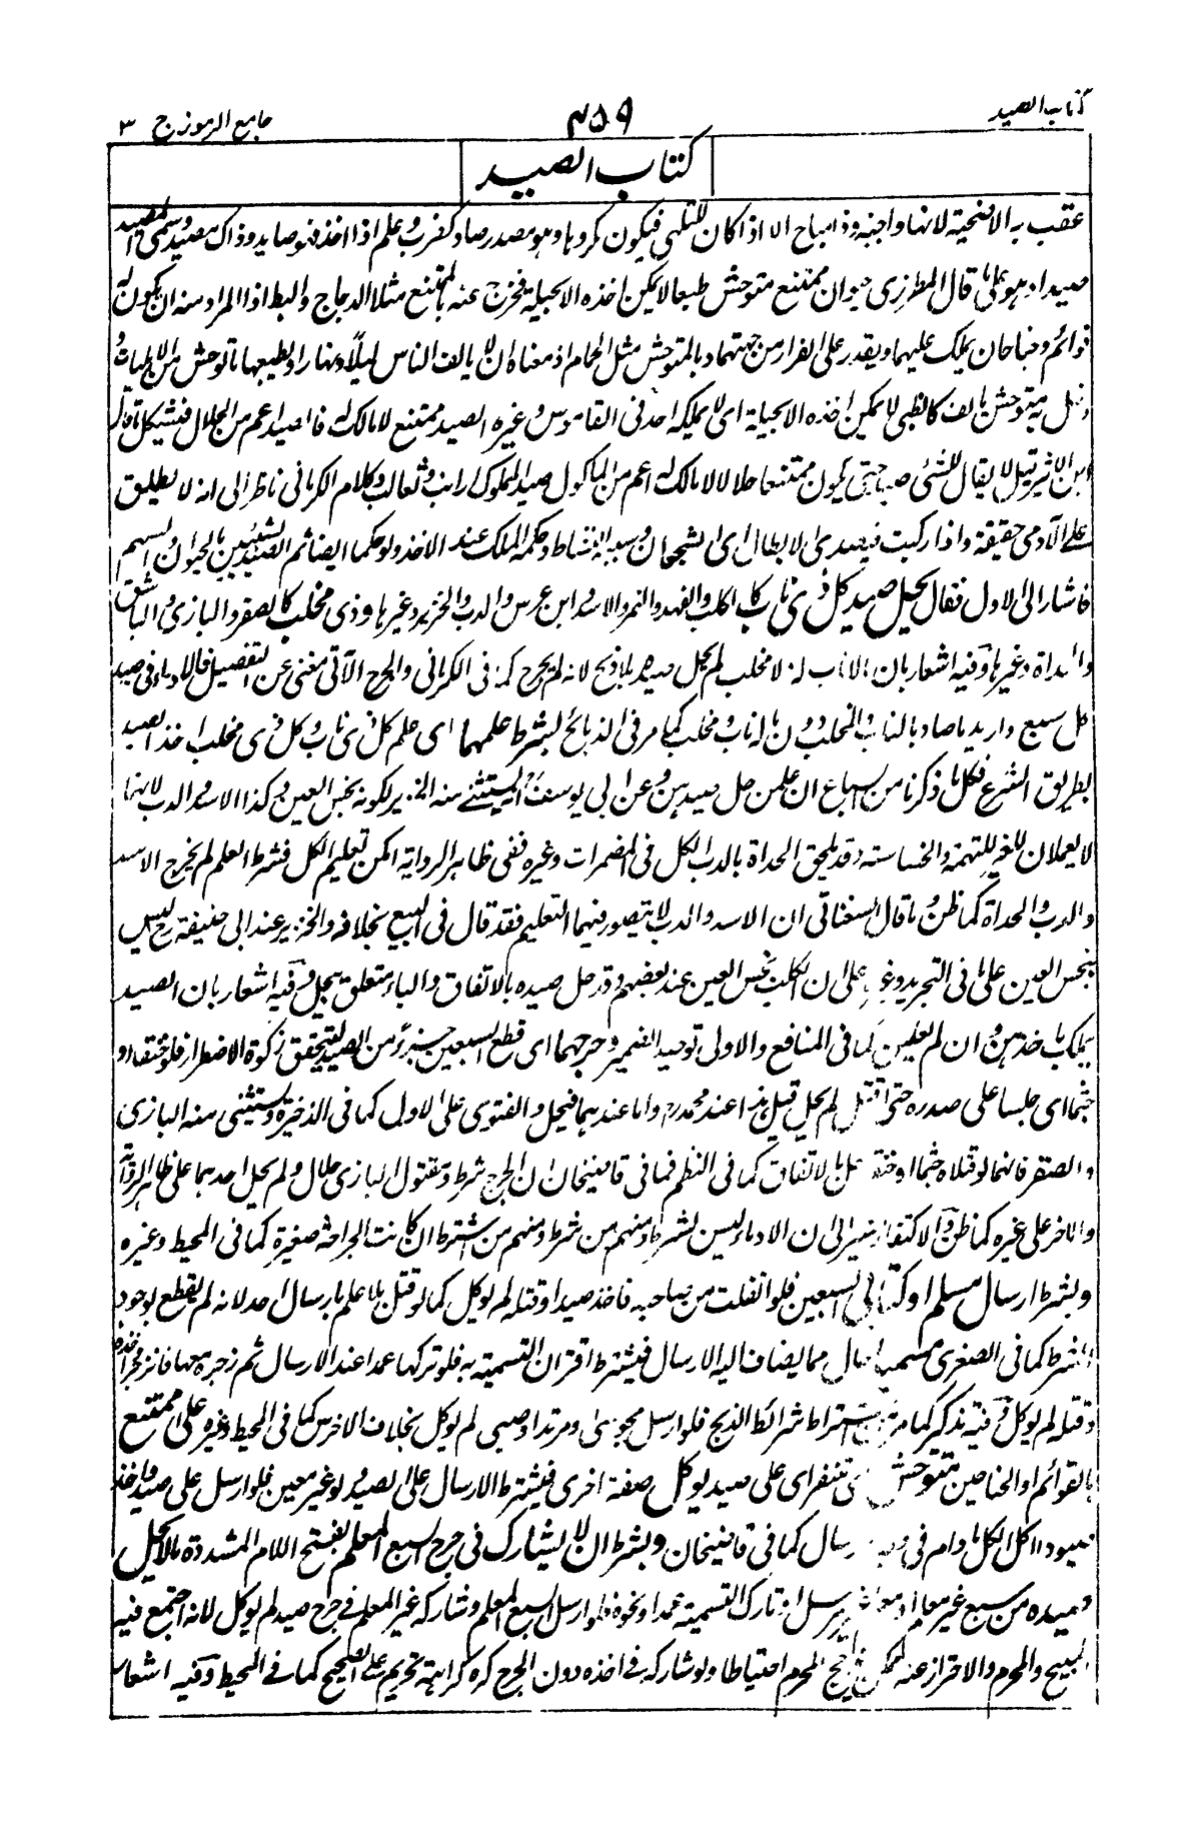 كتاب الصيد
٤٥٩
جامع الرموز ج ٣
كتاب الصيد
عقب به الاضحية لانها واجبة وذا مباح الا اذا كان للتلهي فيكون مكروها وهو مصدر صاد كضرب وعلم اذا اخذ فهو صايد وذاك مصيد وسمى المصيد
صيدا وهو على ما قال المطرزى حيوان ممتنع متوحش طبعا لا يمكن اخذه الا بحيلة فخرج عنه بالممتنع مثلا الدجاج والبط اذ المراد منه ان يكون له
قوائم وجناحان يملك عليهما ويقدر على الفرار من جهتهما وبالمتوحش مثل الحمام اذ معناه ان لا يالف الناس ليلا ونهارا وبطبعها ما توحش من الاهليات و
دخل به متوحش يالف كالظبي لا يمكن اخذه الا بحيلة اى لا يملكه احد فى القاموس وغيره الصيد ممتنع لا مالك له فالصيد اعم من الحلال فيشكل ما قال
ابن الاثير قيل لا يقال للشئ صيد حتى يكون ممتنعا حلالا لا مالك له اعم من المأكول صيد الملوك ارانب وثعالب وكلام الكرمانى ناظر الى انه لا يطلق
على الآدمى حقيقة واذا ركبت فصيدى الابطال اى الشجعان وسببه النشاط وحكمه الملك عند الاخذ ولو حكما ايضا ثم الصيد بشيئين بالحيوان والسهم
فاشار الى الاول فقال يحل صيد كل ذى ناب كالكلب والفهد والنمر والاسد وابن عرس والدب والخنزير وغيرها وذى مخلب كالصقر والبازى والباشق
والحداة وغيرها وفيه اشعار بان ما لا ناب له ولا مخلب لم يحل صيده بلا ذبح لانه لم يجرح كما فى الكرمانى والجرح الآتى مغنى عن التفصيل فالاداء فى صيد
كل سبع واريد ما صاد بالناب والمخلب دون ما له ناب ومخلب كما مر فى الذبائح بشرط علمهما اى علم كل ذى ناب وكل ذى مخلب اخذ الصيد
بطريق الشرع فكل ما ذكرنا من السباع ان علمن حل صيدهن وعن ابى يوسف رح يستثنى منه الخنزير لكونه نجس العين وكذا الاسد والدب لانهما
لا يعملان للغير للتهمة والخساسة وقد يلحق الحداة بالدب الكل فى المضمرات وغيره ففى ظاهر الرواية امكن تعليم الكل فشرط العلم لم يخرج الاسد
والدب والحداة كما ظن وما قال السغناقى ان الاسد والدب لا يتصور فيهما التعليم فقد قال فى البيع بخلافه والخنزير عند ابى حنيفة رح ليس
بنجس العين على ما فى التجريد وغيره على ان الكلب نجس العين عند بعضهم وقد حل صيده بالاتفاق والباء متعلق بيحل وفيه اشعار بان الصيد
يملك باخذهن وان لم يعلمن كما فى المنافع والاولى توحيد الضمير وجرحهما اى قطع السبعين جزءا من الصيد ليتحقق زكوة الاضطرار فلو خنقاه او
جثما اى جلسا على صدره حتى قتل لم يحل قيل هذا عند محمد رح واما عندهما فيحل والفتوى على الاول كما فى الذخيرة ويستثنى منه البازى
والصقر فانهما لو قتلاه جثما او خنقا حل بالاتفاق كما فى النظم فما فى قاضيخان ان الجرح شرط ومقتول البازى حلال ولم يحل احدهما على ظاهر الرواية
والاخر على غيره كما ظن والاكتفاء مشير الى ان الادماء ليس بشرط ومنهم من شرط ومنهم من اشترط ان كانت الجراحة صغيرة كما فى المحيط وغيره
وبشرط ارسال مسلم او كتابى السبعين فلو انفلت من صاحبه فاخذ صيدا وقتله لم يوكل كما لو قتل بلا علم بارسال احد لانه لم يقطع بوجود
الشرط كما فى الصغرى مسميا حال مما يضاف اليه الارسال فيشترط اقتران التسمية به فلو تركها عمدا عند الارسال ثم زجره معها فانزجر فاخذه
وقتله لم يوكل وفيه تذكير كما مر من اشتراط شرائط الذبح فلو ارسل مجوسى او مرتد او صبى لم يوكل بخلاف الاخرس كما فى المحيط وغيره على ممتنع
بالقوائم او الجناحين متوحش اى متنفر اى على صيد يوكل صفة اخرى فيشترط الارسال على الصيد ولو غير معين فلو ارسل على صيد واخذ
صيودا اكل الكل ما دام فى وجه الارسال كما فى قاضيخان وبشرط ان لا يشارك فى جرح السبع المعلم بفتح اللام المشددة ما لا يحل
صيده من سبع غير معلم او مرسل او تارك التسمية عمدا ونحوه فلو ارسل السبع المعلم وشاركه غير المعلم فى جرح صيد لم يوكل لانه اجتمع فيه
المبيح والمحرم والاحتراز عنه ممكن فيرجح المحرم احتياطا ولو شاركه فى اخذه دون الجرح كره كراهة تحريم على الصحيح كما فى المحيط وفيه اشعار